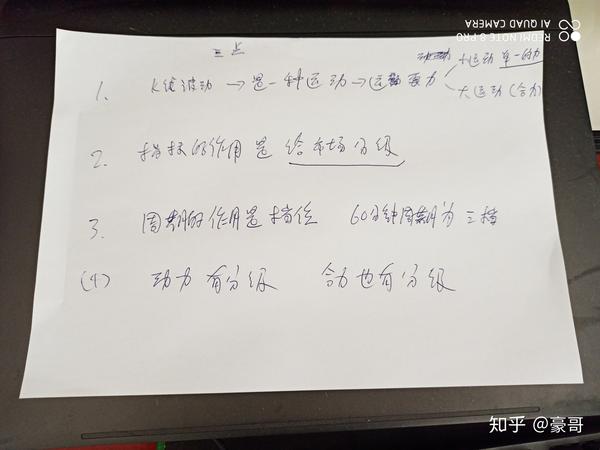 三点
1. K线波动→是一种运动→运动要力 小运动 单一的力
大运动(合力)
2. 指标的作用是 给市场分级
3. 周期的作用是档位 60分钟周期为三档
(4) 动力有分级 合力也有分级
REDMI NOTE 8 PRO
AI QUAD CAMERA
知乎 @豪哥